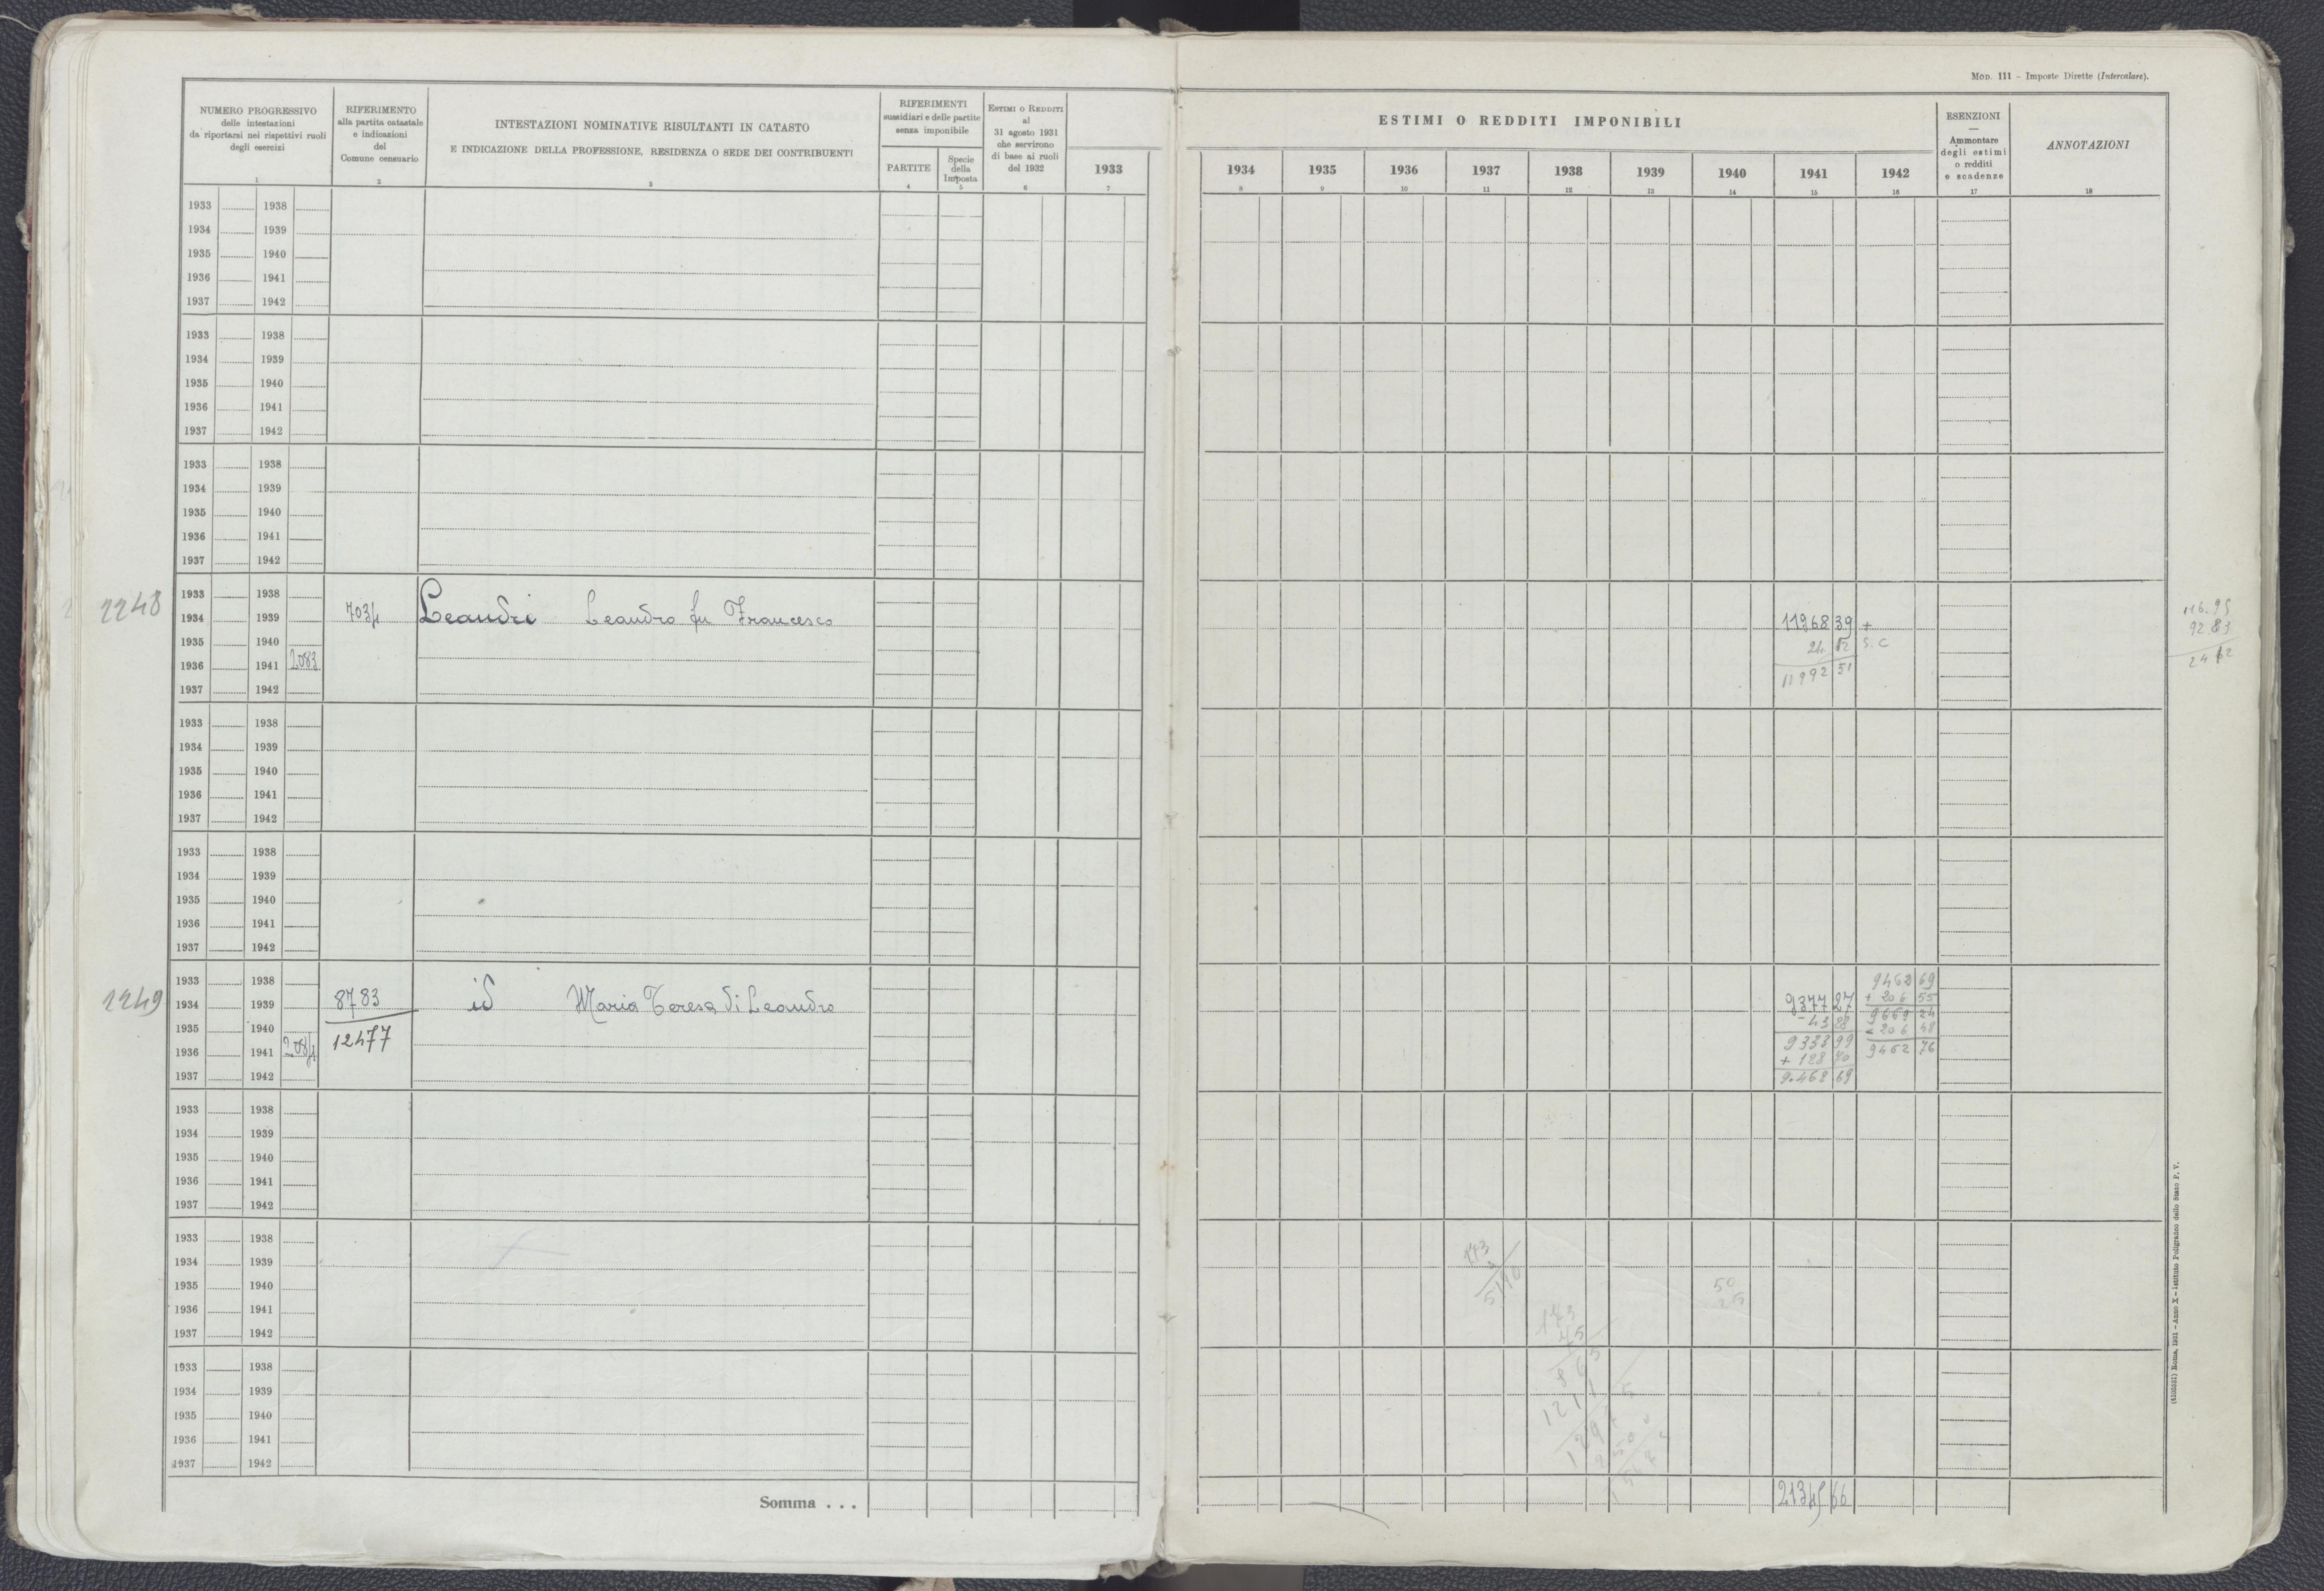 Mod. 111 - Imposte Dirette (Intercalare).
NUMERO PROGRESSIVO
delle intestazioni
da riportarsi nei rispettivi ruoli
degli esercizi
1
RIFERIMENTO
alla partita catastale
e indicazioni
del
Comune censuario
2
INTESTAZIONI NOMINATIVE RISULTANTI IN CATASTO
E INDICAZIONE DELLA PROFESSIONE, RESIDENZA O SEDE DEI CONTRIBUENTI
3
RIFERIMENTI
sussidiari e delle partite
senza imponibile
PARTITE
4
Specie
della
Imposta
5
ESTIMI O REDDITI
al
31 agosto 1931
che servirono
di base ai ruoli
del 1932
6
1933
7
ESTIMI O REDDITI IMPONIBILI
1934 1935 1936 1937 1938 1939 1940 1941 1942
8 9 10 11 12 13 14 15 16
ESENZIONI
—
Ammontare
degli estimi
o redditi
e scadenze
17
ANNOTAZIONI
18
1933 1938
1934 1939
1935 1940
1936 1941
1937 1942
1933 1938
1934 1939
1935 1940
1936 1941
1937 1942
1933 1938
1934 1939
1935 1940
1936 1941
1937 1942
2248
1933 1938
1934 1939 7034 Leandri Leandro fu Francesco 11968 39 +
1935 1940 S.C
1936 1941 2083 11992 51
1937 1942
116.95
92.83
1933 1938
1934 1939
1935 1940
1936 1941
1937 1942
1933 1938
1934 1939
1935 1940
1936 1941
1937 1942
2249
1933 1938 9462 69
1934 1939 8783 id Maria Teresa di Leandro 9377 27 + 206 55
1935 1940 12477 - 43 28 9669 24
- 206 48
1936 1941 2084 9333 99 9462 76
+ 128 70
1937 1942 9.462 69
1933 1938
1934 1939
1935 1940
1936 1941
1937 1942
1933 1938
1934 1939
1935 1940
1936 1941
1937 1942
173
5190
50
25
173
75
865
1211
1933 1938
1934 1939
1935 1940
1936 1941
1937 1942
Somma . . . 21345 66
(4105531) Roma, 1931 - Anno X - Istituto Poligrafico dello Stato P. V.